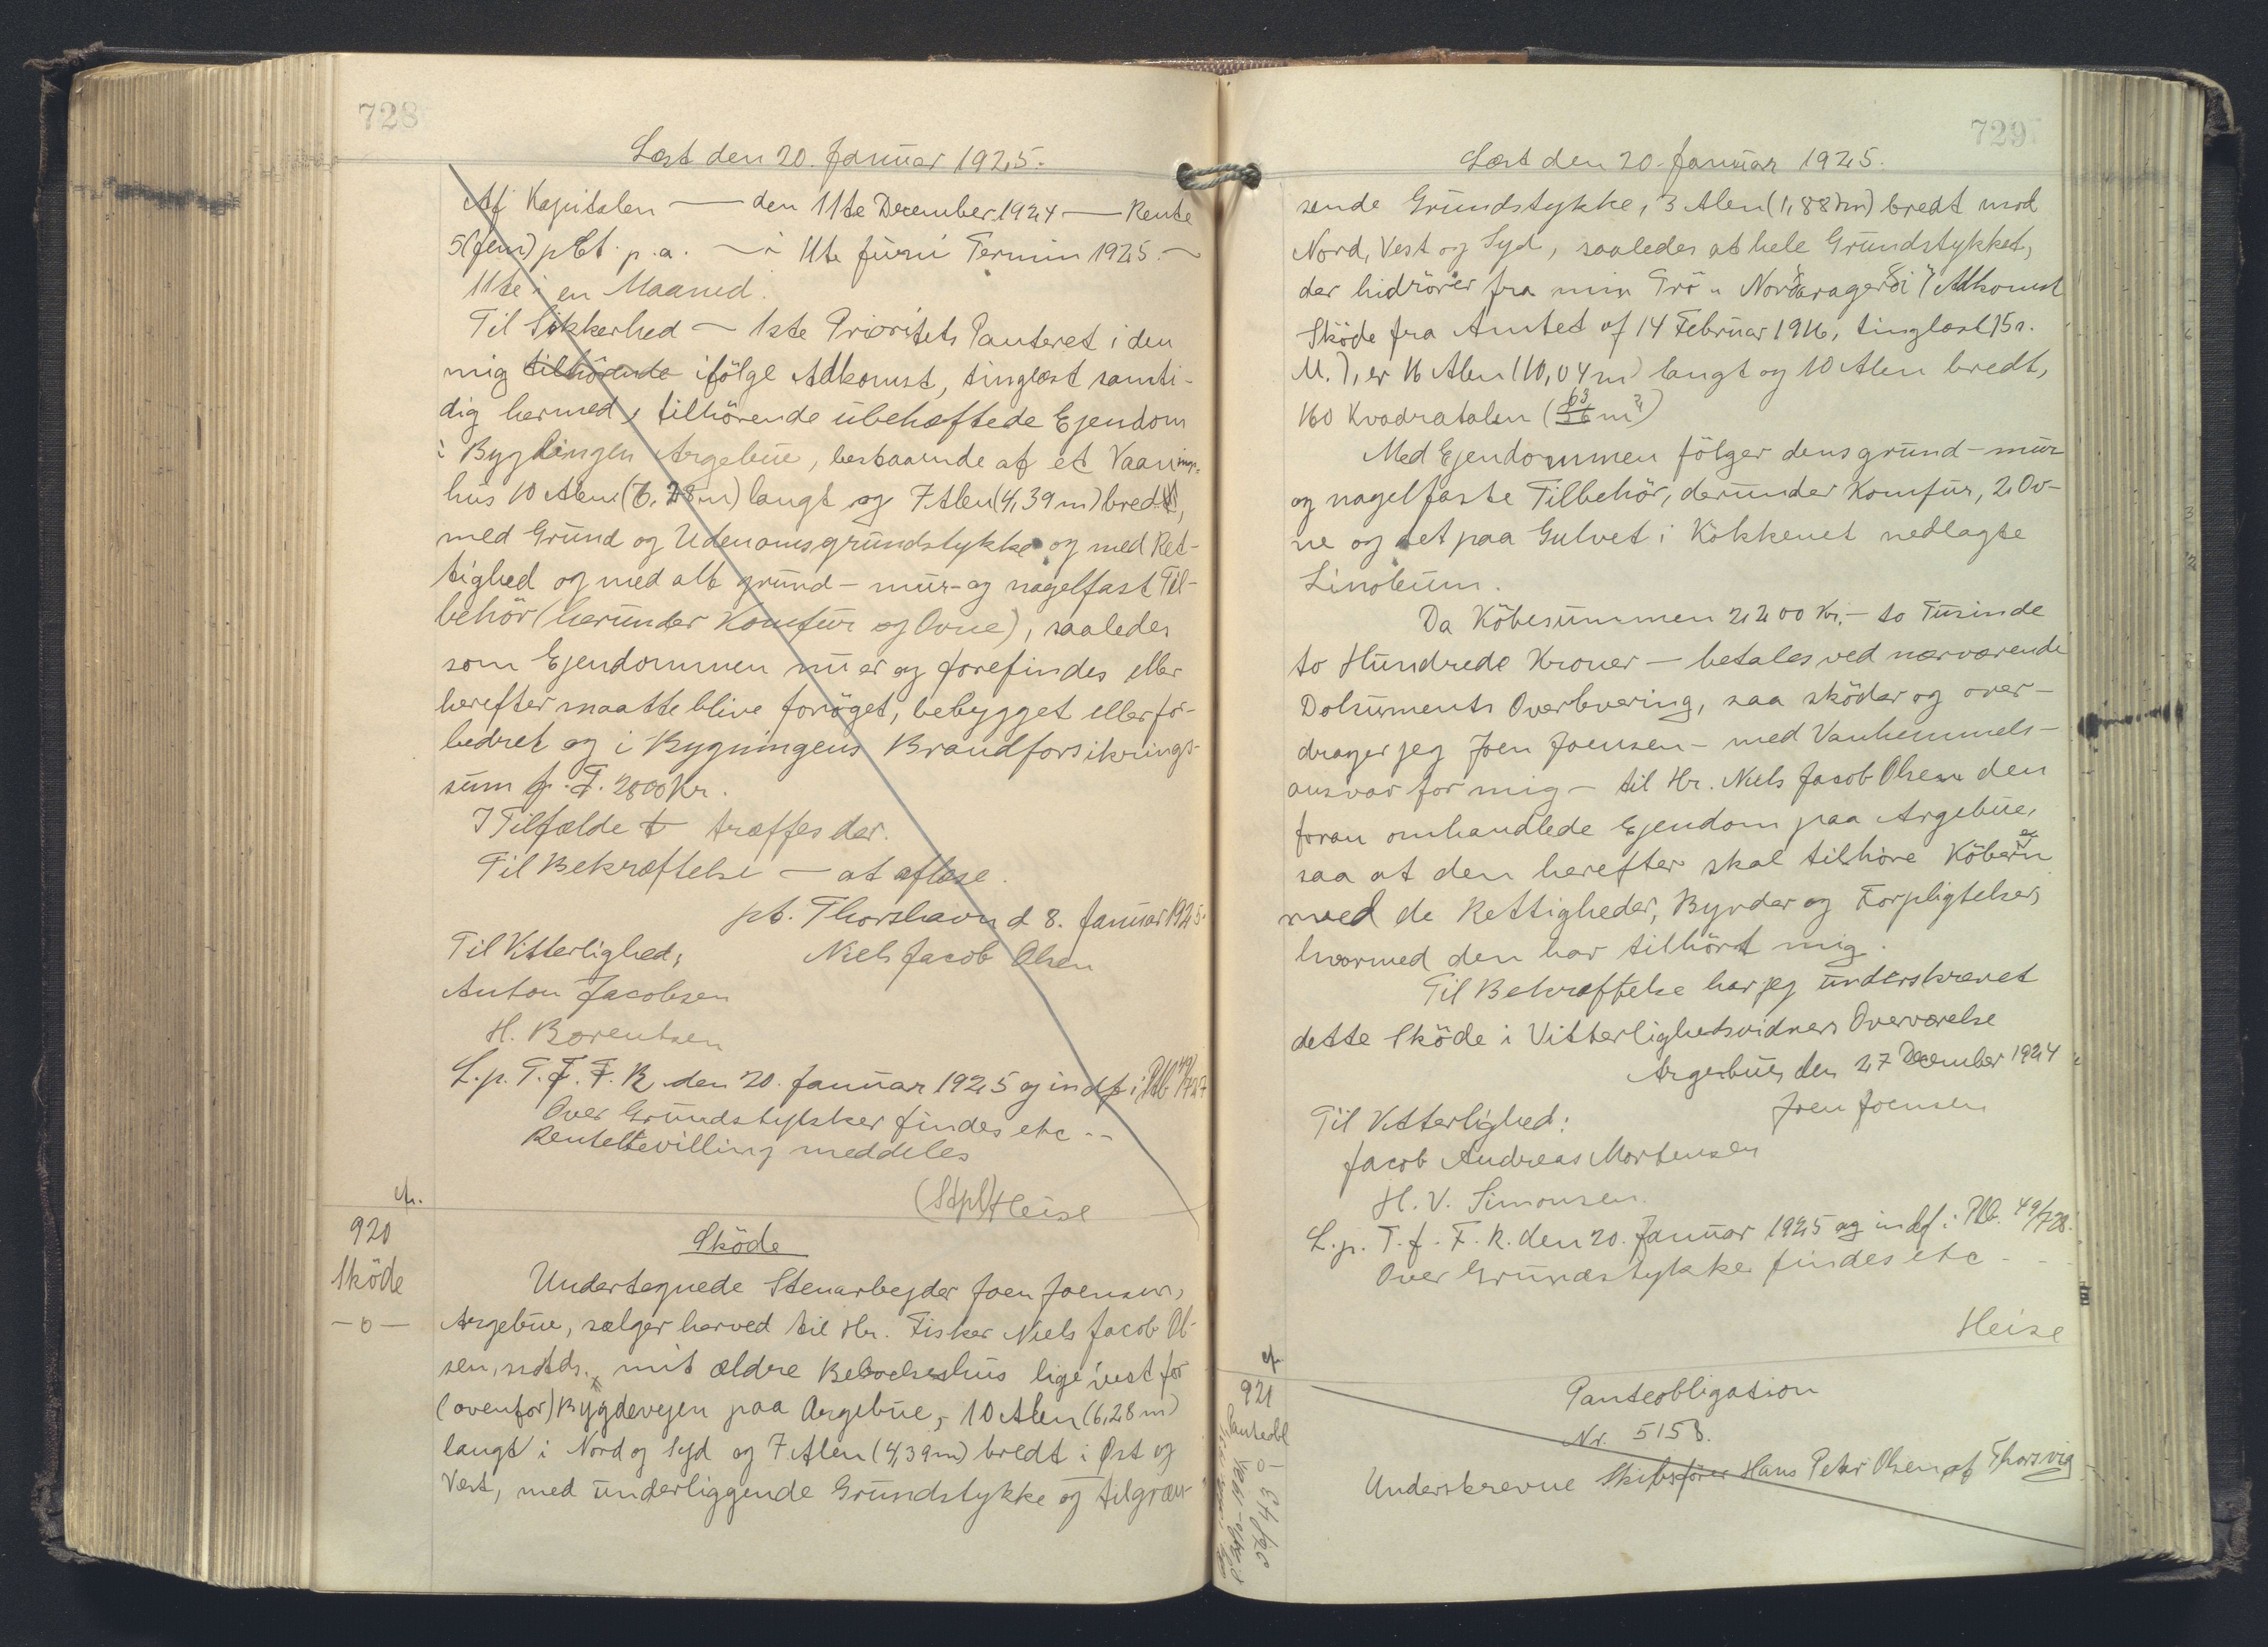 728
Læst den 20. Januar 1925.
Af Kapitalen — den 11te December 1924 — Rente
5 (fem) pCt. p.a. — i 11te Juni Termin 1925 —
11te i en Maaned.
Til Sikkerhed — 1ste Prioritets Panteret i den
mig tilhörende ifölge Adkomst, tinglæst samti-
dig hermed, tilhörende ubehæftede Ejendom
i Bygdingen Argebue, bestaaende af et Vaanings-
hus 10 Alen (6,28 m) langt og 7 Alen (4,39 m) bredt,
med Grund og Udenomsgrundstykke og med Ret-
tighed og med alt grund- mur- og nagelfast Til-
behör (herunder Komfur og Ovne), saaledes
som Ejendommen nu er og forefindes eller
herefter maatte blive forøget, bebygget eller for-
bedret og i Bygningens Brandforsikrings-
sum p. T. 2800 Kr.
I Tilfælde t træffes der.
Til Bekræftelse — at aflæse.
pt. Thorshavn d 8. Januar 1925.
Til Vitterlighed: Niels Jacob Olsen
Anton Jacobsen
H. Berentsen
L. p. T. f. F. R. den 20. Januar 1925 og indf i Pb. 49/727
Over Grundstykker findes etc --
Rentebevilling meddeles
(Stpl) Heise
cfr.
920
Sköde
—o—
Sköde
Undertegnede Stenarbejder Joen Joensen,
Argebue, sælger herved til Hr. Fisker Niels Jacob Ol-
sen, smstds., mit ældre Beboelseshus lige vest for
(ovenfor) Bygdevejen paa Argebue, 10 Alen (6,28 m)
langt i Nord og Syd og 7 Alen (4,39 m) bredt i Øst og
Vest, med underliggende Grundstykke og tilgræn-
729
Læst den 20. Januar 1925.
sende Grundstykke, 3 Alen (1,88 m) bredt mod
Nord, Vest og Syd, saaledes at hele Grundstykket,
der hidrörer fra min Trö „Norðaragerði“ (Adkomst
Sköde fra Amtet af 14 Februar 1916, tinglæst 15 s.
M.), er 16 Alen (10,04 m) langt og 10 Alen bredt,
160 Kvadratalen (63 m²)
Med Ejendommen fölger dens grund- mur
og nagelfaste Tilbehör, derunder Komfur, 2 Ov-
ne og det paa Gulvet i Kökkenet nedlagte
Linoleum.
Da Köbesummen 2200 Kr. — to Tusinde
to Hundrede Kroner — betales ved nærværende
Dokuments Overlevering, saa sköder og over-
drager jeg Joen Joensen — med Vanhemmels-
ansvar for mig — til Hr. Niels Jacob Olsen den
foran omhandlede Ejendom paa Argebue,
saa at den herefter skal tilhöre Köberen
med de Rettigheder, Byrder og Forpligtelser,
hvormed den har tilhört mig.
Til Bekræftelse har jeg underskrevet
dette Sköde i Vitterlighetsvidners Overværelse
Argebue, den 27 December 1924
Joen Joensen
Til Vitterlighed:
Jacob Andreas Mortensen
H. V. Simonsen.
L. p. T. f. F. R. den 20. Januar 1925 og indf i Pb. 49/728.
Over Grundstykke findes etc - -
Heise
cfr
921
Panteobl
—o—
Panteobligation
Nr. 5158.
Underskrevne Skibsförer Hans Peter Olsen af Thorsvig